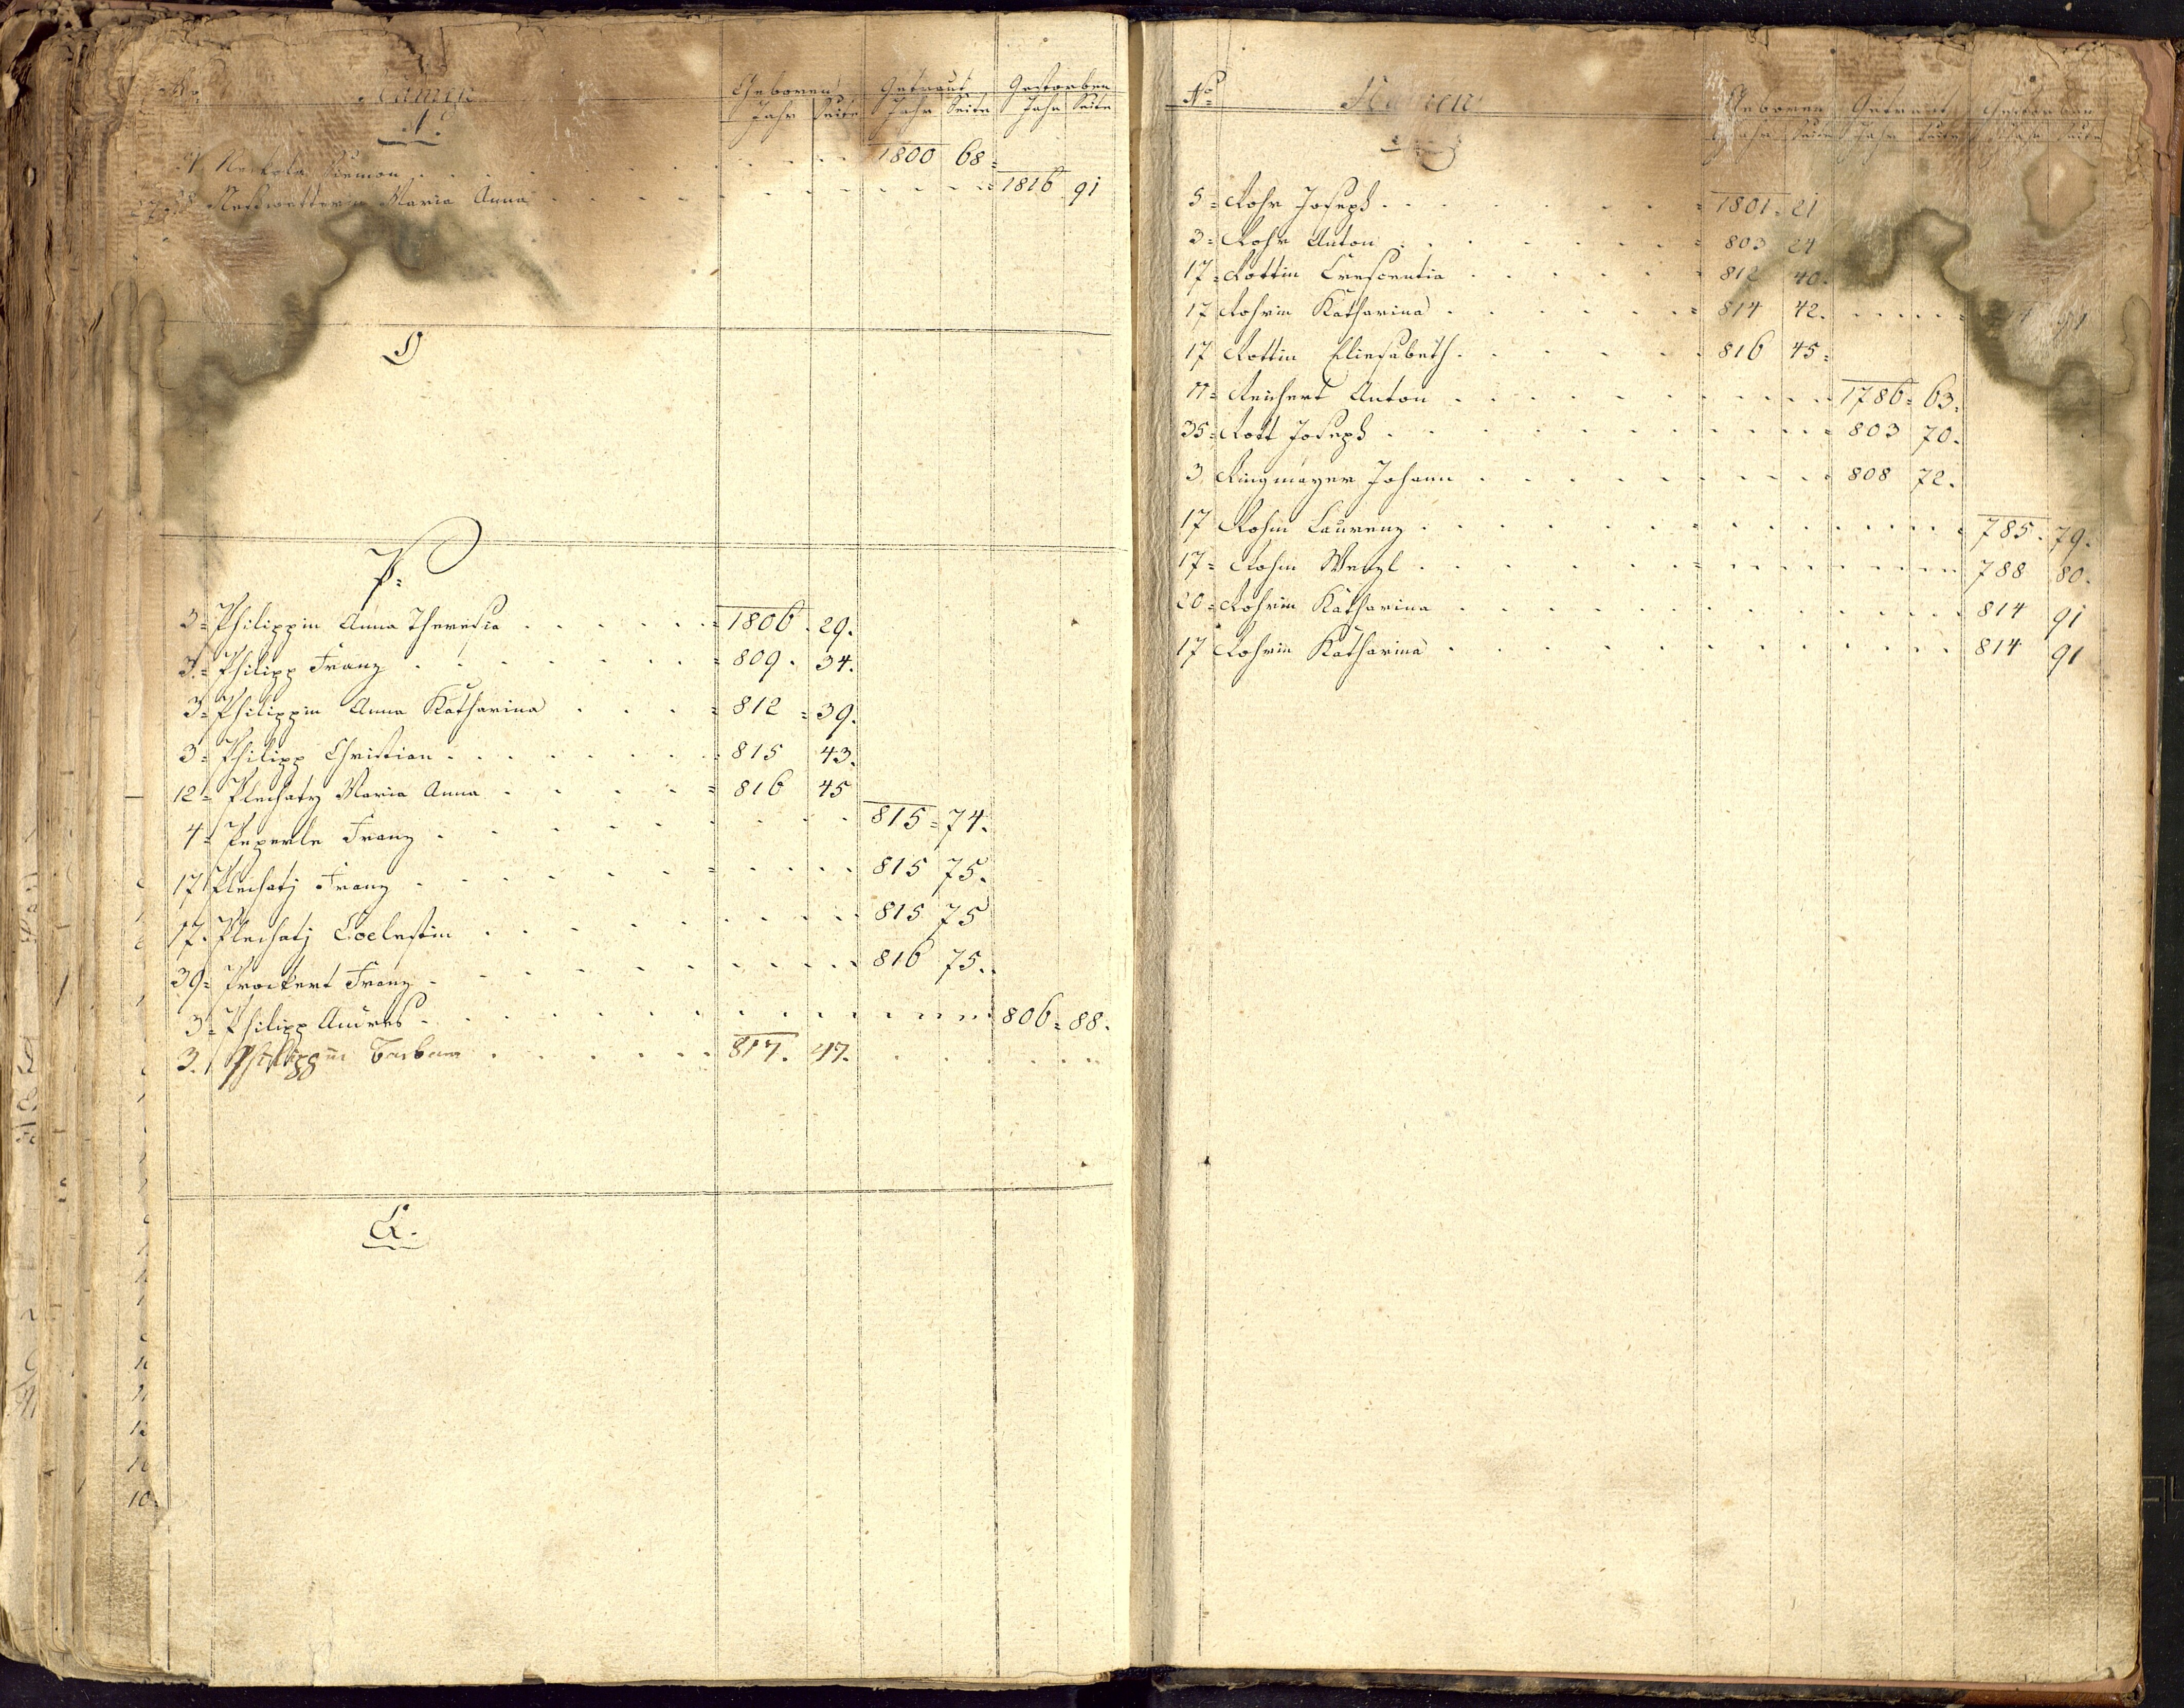 Geboren Getraut Gestorben
Jahr Seite Jahr Seite Jahr Seite
Simon 1800 68
Maria Anna 1816 91
O
P:
3 Philippin Anna Theresia 1806 29.
3 Philipp Franz 809. 34.
3 Philippin Anna Katharina 812 39.
3 Philipp Christian 815 43.
12 Plechaty Maria Anna 816 45
4 Peperle Franz 815 74.
17 Plechatj Franz 815 75.
17. Plechatj Coelestin 815 75
39 Prockert Franz 816 75.
3 Philipp Andres 806 88.
3. Philippin Barbara 817. 47.
Q.
No Namen Geboren Getraut Gestorben
Jahr Seite Jahr Seite Jahr Seite
5 Rohr Joseph 1801. 21
3 Rohr Anton 803 24
17 Rottin Crescentia 812 40.
17 Rohrin Katharina 814 42.
17 Rottin Eliesabeth 816 45
11 Reichert Anton 1786 63.
35 Rott Joseph 803 70.
3 Ringmayer Johann 808 72.
17 Rohm Laurenz 785. 79.
17 Rohm Wenzl 788 80.
20 Rohrin Katharina 814 91
17 Rohrin Katharina 814 91